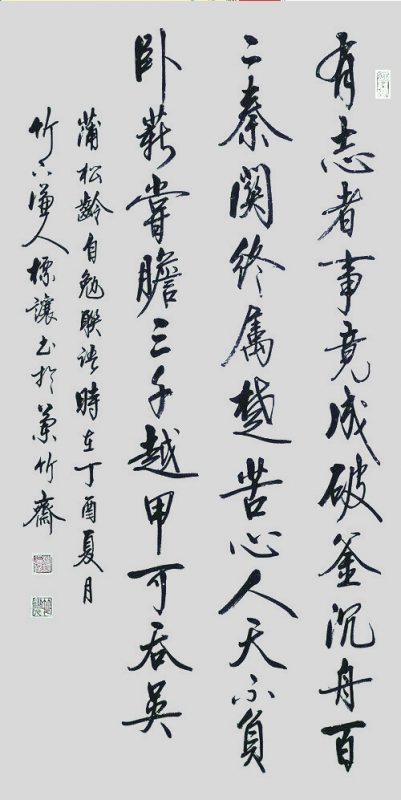 有志者事竟成破釜沉舟百
二秦關終属楚苦心人天不負
卧薪嘗膽三千越甲可吞吴
蒲松齡自勉聯語時在丁酉夏月
竹下謙人標讓书於蘭竹齋